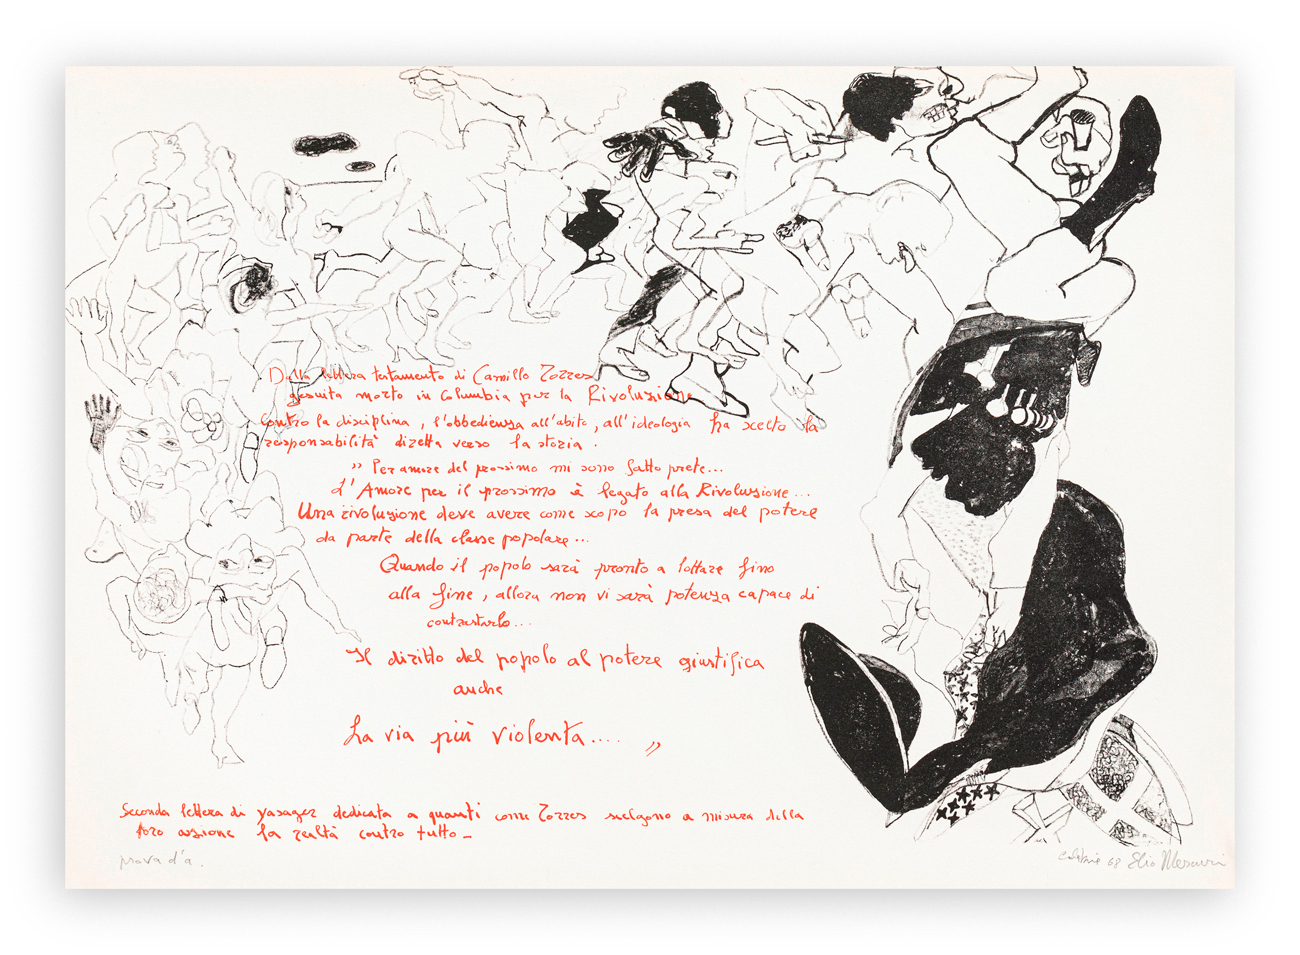 Dalla lettera testamento di Camillo Torres
gesuita morto in Columbia per la Rivoluzione
contro la disciplina, l'obbedienza all'abito, all'ideologia ha scelto la
responsabilità diretta verso la storia.
" Per amore del prossimo mi sono fatto prete...
L'Amore per il prossimo è legato alla Rivoluzione...
Una rivoluzione deve avere come scopo la presa del potere
da parte della classe popolare...
Quando il popolo sarà pronto a lottare fino
alla fine, allora non vi sarà potenza capace di
contrastarlo...
Il diritto del popolo al potere giustifica
anche
La via più violenta.... "
Seconda lettera di Yasager dedicata a quanti come Torres scelgono a misura della
loro azione la realtà contro tutto_
prova d'a.
68 Elio